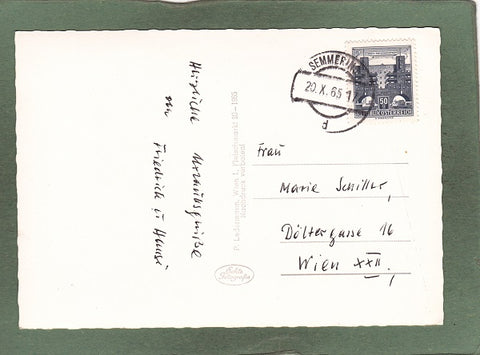 Herzliche Urlaubsgrüße
von
Friedrich u Hansi
P. Ledermann, Wien I, Fleischmarkt 20 - 1965
Nachdruck verboten!
Echte
Fotografie
SEMMERING
20.X.65-17
d
50
REPUBLIK ÖSTERREICH
Frau
Marie Schiller,
Döltergasse 16
Wien XXII,